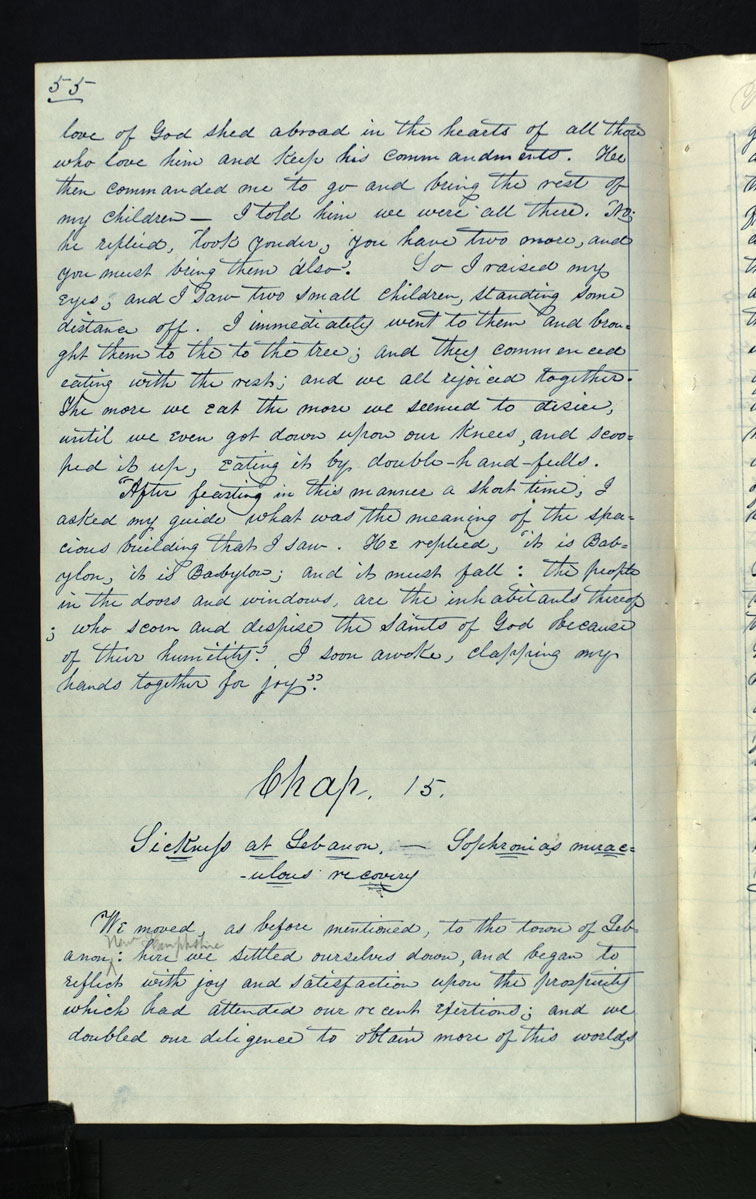 55
love of God shed abroad in the hearts of all those
who love him and keep his commandments. He
then commanded me to go and bring the rest of
my children— I told him we were all there. "No;
he replied, "look yonder, you have two more, and
you must bring them also". So I raised my
eyes; and I saw two small children, standing some
distance off. I immediately went to them and brou=
ght them to the to the tree; and they commenced
eating with the rest; and we all rejoiced together.
The more we eat the more we seemed to desire,
until we even got down upon our knees, and scoo=
ped it up, eating it by double-hand-fulls.
"After feasting in this manner a short time; I
asked my guide what was the meaning of the spa=
cious building that I saw. He replied, "it is Bab=
ylon, it is Babylon; and it must fall: the people
in the doors and windows, are the inhabitants thereof
; who scorn and despise the saints of God because
of their humility". I soon awoke, clapping my
hands together for joy".
Chap. 15.
Sickness at Lebanon. — Sophronia's mirac=
-ulous recovery
We moved, as before mentioned, to the town of Leb-
New Hampshire
anon: here we settled ourselves down, and began to
reflect with joy and satisfaction upon the prosperity
which had attended our recent exertions; and we
doubled our diligence to obtain more of this worlds